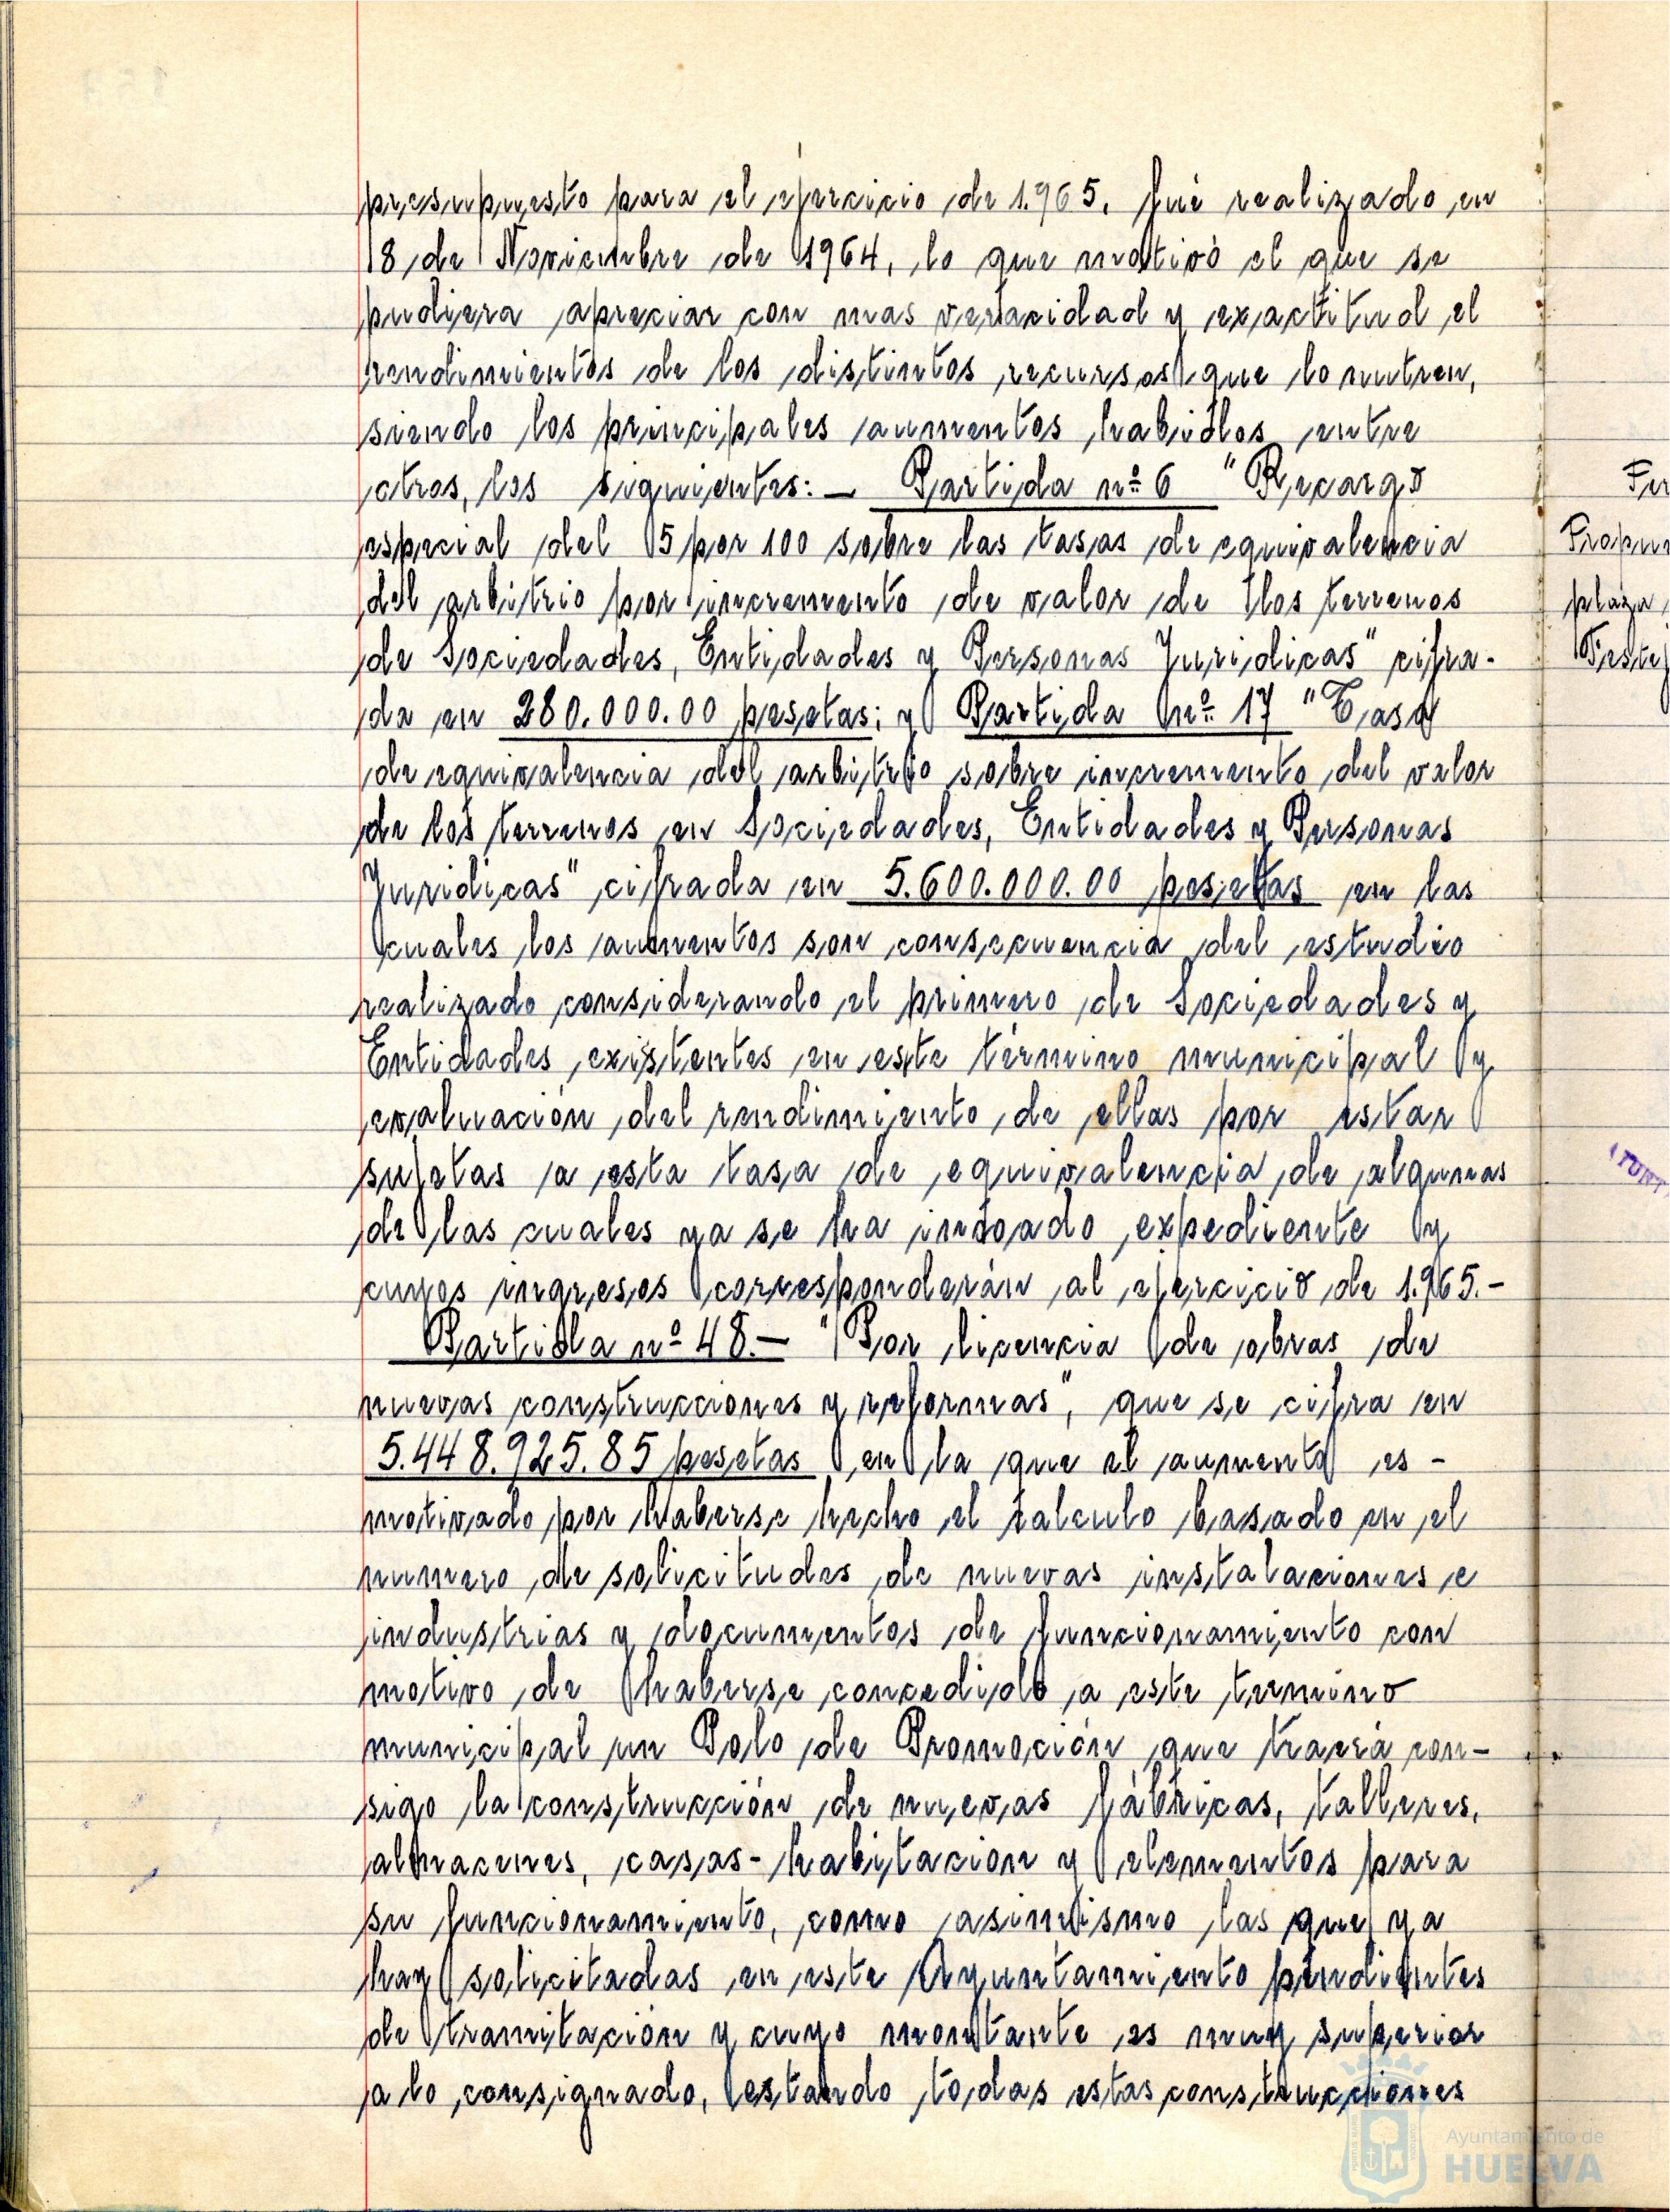 presupuesto para el ejercicio de 1.965, fué realizado en
18 de Noviembre de 1964, lo que motivó el que se
pudiera apreciar con mas veracidad y exactitud el
rendimientos de los distintos recursos que lo nutren,
siendo los principales aumentos habidos entre
otros, los siguientes: — Partida nº 6 "Recargo
especial del 5 por 100 sobre las tasas de equivalencia
del arbitrio por incremento de valor de los terrenos
de Sociedades, Entidades y Personas Juridicas" cifra-
da en 280.000.00 pesetas; y Partida nº 17 "Tasa
de equivalencia del arbitrio sobre incremento del valor
de los terrenos en Sociedades, Entidades y Personas
Juridicas" cifrada en 5.600.000.00 pesetas en las
cuales los aumentos son consecuencia del estudio
realizado considerando el primero de Sociedades y
Entidades existentes en este término municipal y
evaluación del rendimiento de ellas por estar
sujetas a esta tasa de equivalencia de algunas
de las cuales ya se ha incoado expediente y
cuyos ingresos corresponderán al ejercicio de 1.965.-
Partida nº 48.— "Por licencia de obras de
nuevas construcciones y reformas", que se cifra en
5.448.925.85 pesetas en la que el aumento es -
motivado por haberse hecho el calculo basado en el
numero de solicitudes de nuevas instalaciones e
industrias y documentos de funcionamiento con
motivo de haberse concedido a este termino
municipal un Polo de Promoción que traerá con-
sigo la construcción de nuevas fábricas, talleres,
almacenes, casas-habitacion y elementos para
su funcionamiento, como asimismo las que ya
hay solicitadas en este Ayuntamiento pendientes
de tramitación y cuyo montante es muy superior
a lo consignado, estando todas estas construcciones
Ayuntamiento de
HUELVA